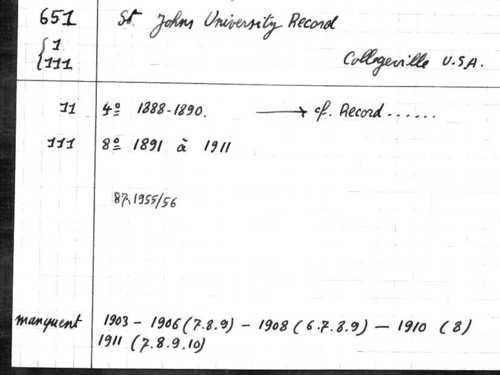 651 St Johns University Record
{ 1
{ 111 Collegeville U.S.A.
11 4º 1888-1890. → cf. Record ......
111 8º 1891 à 1911
87, 1955/56
manquent 1903 - 1906 (7.8.9) - 1908 (6.7.8.9) - 1910 (8)
1911 (7.8.9.10)